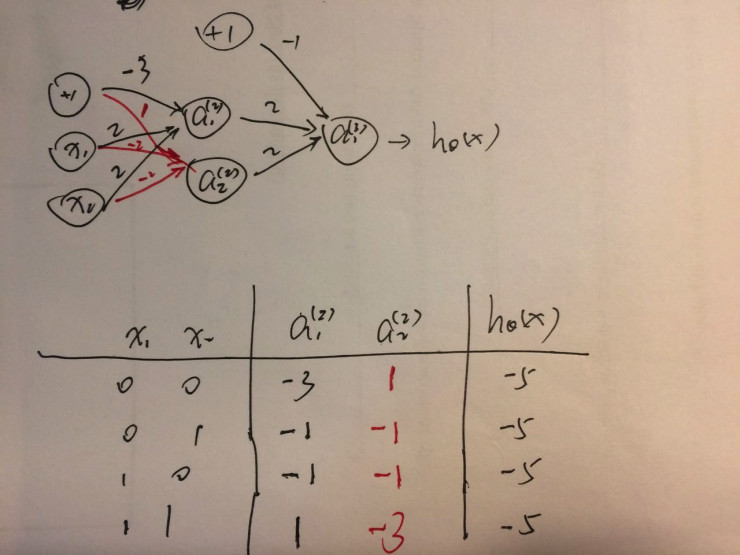 +1
-1
-3
+1
1
a₁⁽²⁾
2
2
x₁
-2
a₁⁽³⁾ → hθ(x)
2
-2
a₂⁽²⁾
2
x₂
x₁ x₂ a₁⁽²⁾ a₂⁽²⁾ hθ(x)
0 0 -3 1 -5
0 1 -1 -1 -5
1 0 -1 -1 -5
1 1 1 -3 -5